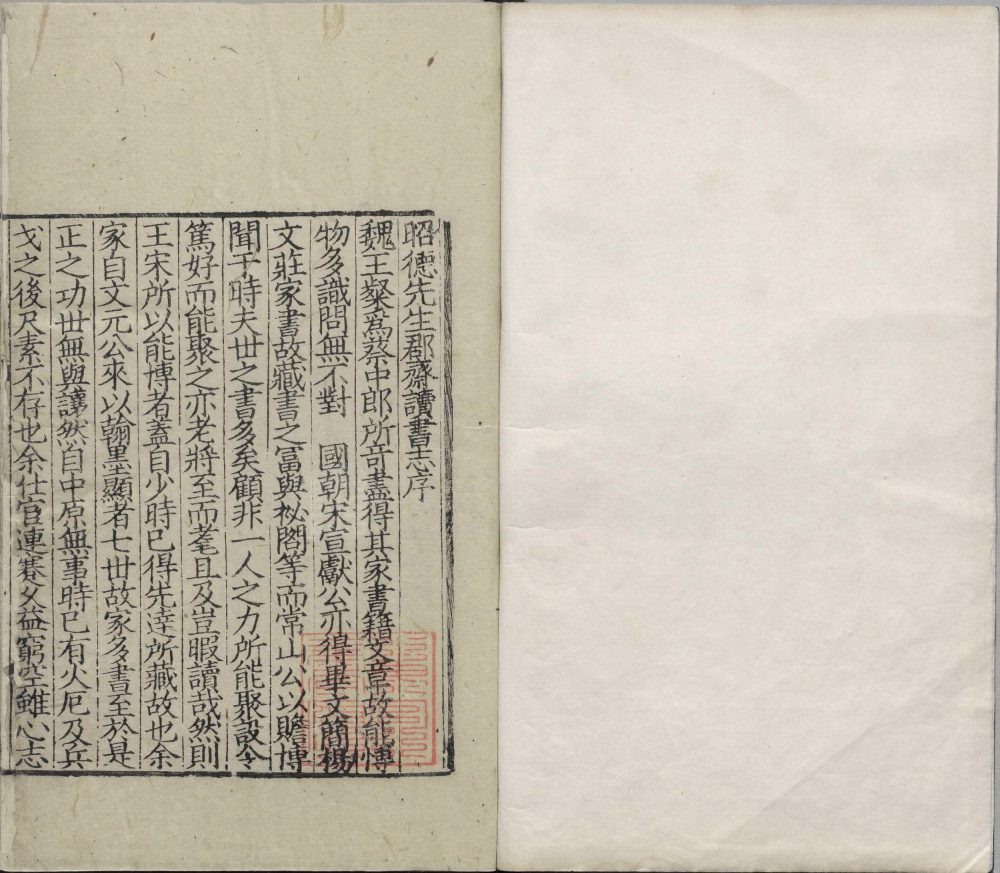 昭德先生郡齋讀書志序
魏王粲爲蔡中郎所竒盡得其家書籍文章故能博
物多識問無不對　國朝宋宣獻公亦得畢文簡楊
文莊家書故藏書之富與祕閣等而常山公以贍博
聞于時夫丗之書多矣顧非一人之力所能聚設令
篤好而能聚之亦老將至而耄且及豈暇讀哉然則
王宋所以能博者蓋自少時已得先達所藏故也余
家自文元公來以翰墨顯者七丗故家多書至於是
正之功丗無與讓然自中原無事時已有火厄及兵
戈之後尺素不存也余仕宦連蹇久益窮空雖心志